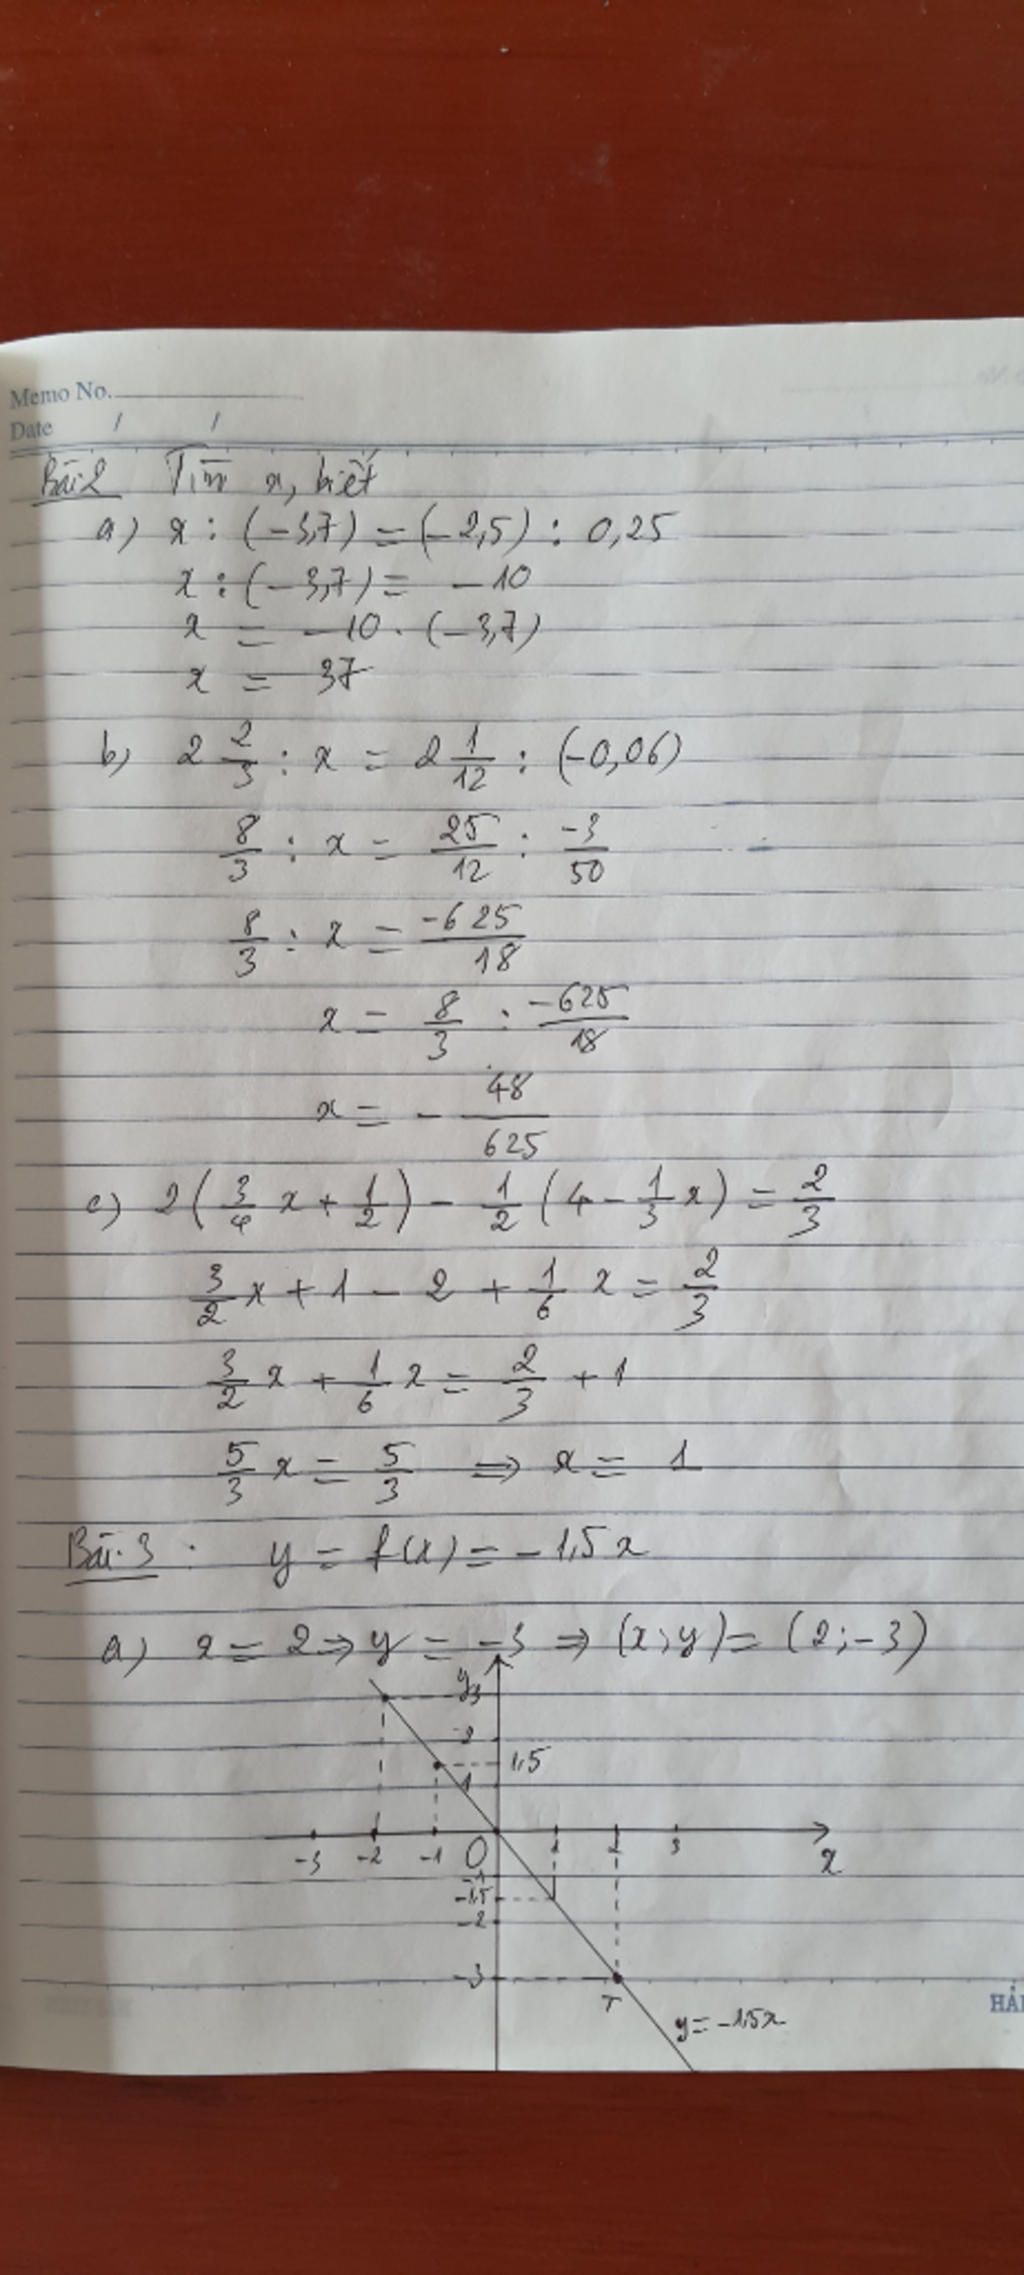 Memo No.
Date / /
Bài 2 Tìm x, biết
a) x : (-3,7) = (-2,5) : 0,25
x : (-3,7) = -10
x = -10 . (-3,7)
x = 37
b) 2 2/3 : x = 2 1/12 : (-0,06)
8/3 : x = 25/12 : -3/50
8/3 : x = -625/18
x = 8/3 : -625/18
x = - 48/625
c) 2(3/4 x + 1/2) - 1/2 (4 - 1/3 x) = 2/3
3/2 x + 1 - 2 + 1/6 x = 2/3
3/2 x + 1/6 x = 2/3 + 1
5/3 x = 5/3 ⇒ x = 1
Bài 3 : y = f(x) = -1,5x
a) x = 2 ⇒ y = -3 ⇒ (x; y) = (2; -3)
y 3
2
1,5
1
-3 -2 -1 O 1 2 3 x
-1
-1,5
-2
-3
T
y = -1,5x
HẢI